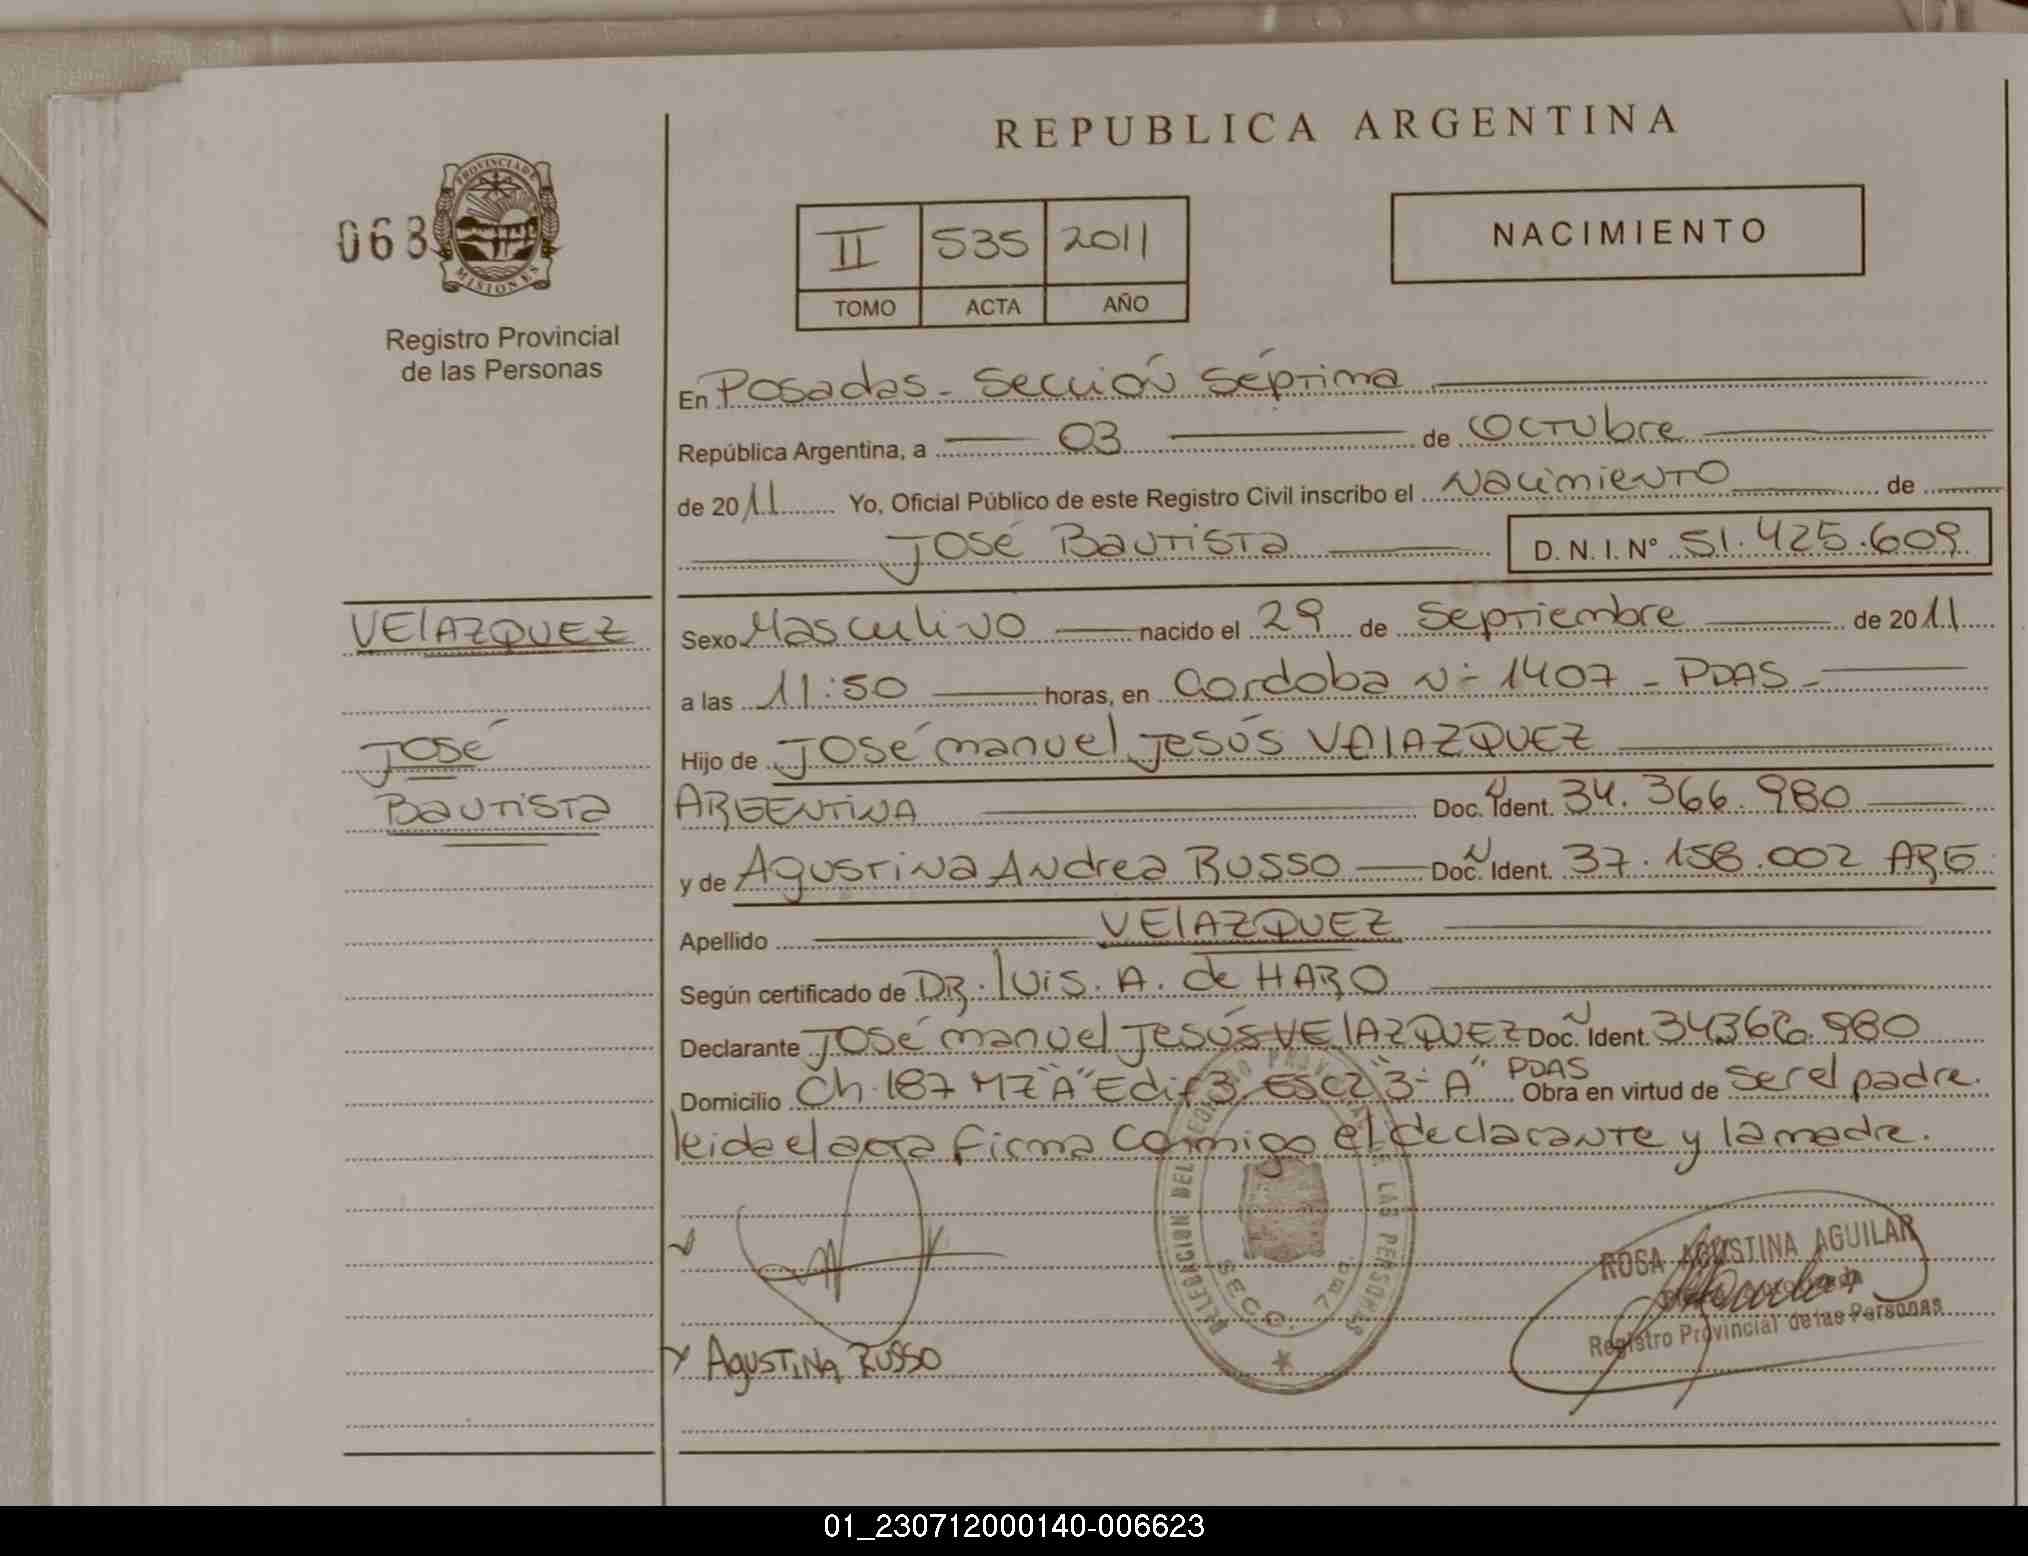 REPUBLICA ARGENTINA
068
PROVINCIA DE
MISIONES
Registro Provincial
de las Personas
II 535 2011
TOMO ACTA AÑO
NACIMIENTO
En Posadas - Sección Séptima
República Argentina, a 03 de Octubre
de 2011 Yo, Oficial Público de este Registro Civil inscribo el Nacimiento de
José Bautista D. N. I. Nº 51.425.609
VElAZQUEZ
José
Bautista
Sexo Masculino nacido el 29 de Septiembre de 2011
a las 11:50 horas, en Cordoba Nº 1407 - PDAS -
Hijo de José manuel Jesús VElAZQUEZ
ARGENTINA Doc. N Ident. 34.366.980
y de Agustina Andrea RUSSO Doc. N Ident. 37.158.002 ARG.
Apellido VElAZQUEZ
Según certificado de DR. luis. A. de HARO
Declarante José manuel Jesús VElAZQUEZ Doc. N Ident. 34366.980
Domicilio Ch. 187 MZ "A" Edif 3. ESC2 "3- A" PDAS Obra en virtud de ser el padre.
leida el acta firma conmigo el declarante y la madre.
DELEGACION DEL REGISTRO PROVINCIAL DE LAS PERSONAS
SECC. 7ma
ROSA AGUSTINA AGUILAR
Registro Provincial de las Personas
AgUSTiNA RUSSO
01_230712000140-006623